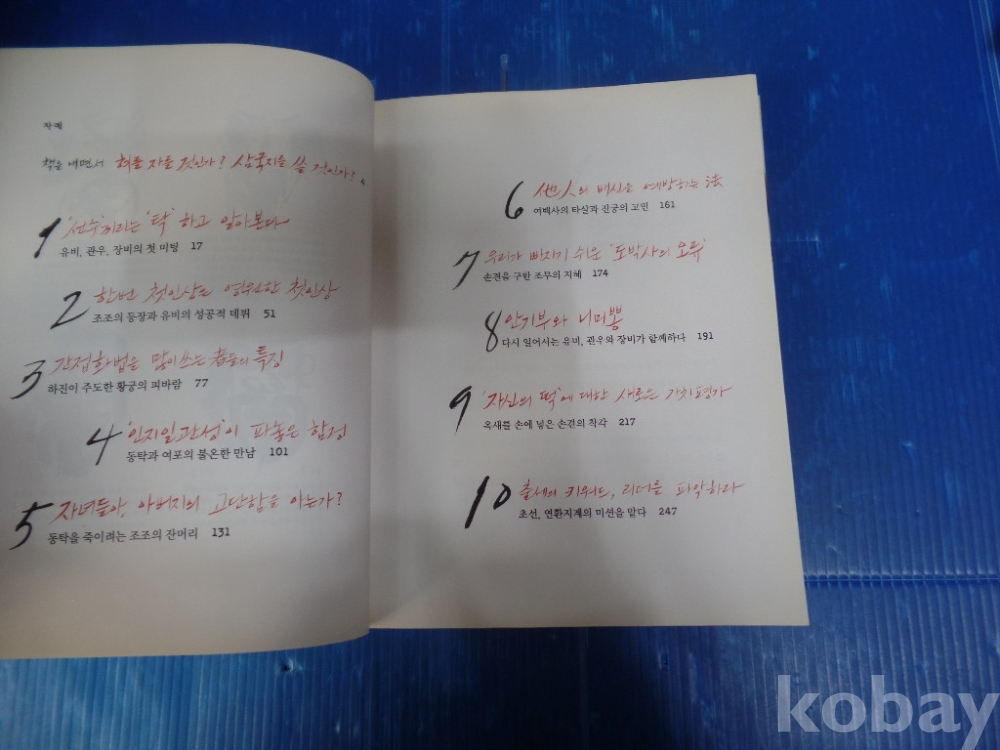 차례
책을 내면서 혀를 자를 것인가? 삼국지를 쓸 것인가?
1 '선수'끼리는 '탁' 하고 알아본다
유비, 관우, 장비의 첫 미팅 17
2 한번 첫인상은 영원한 첫인상
조조의 등장과 유비의 성공적 데뷔 51
3 간접화법을 많이 쓰는 者들의 특징
하진이 주도한 황궁의 피바람 77
4 '인지일관성'이 파놓은 함정
동탁과 여포의 불온한 만남 101
5 자녀들아, 아버지의 고단함을 아는가?
동탁을 죽이려는 조조의 잔머리 131
6 他人의 배신을 예방하는 法
여백사의 타살과 진궁의 고민 161
7 우리가 빠지기 쉬운 '도박사의 오류'
손견을 구한 조무의 지혜 174
8 안기부와 니미뽕
다시 일어서는 유비, 관우와 장비가 함께하다 191
9 '자신의 떡'에 대한 새로운 가치평가
옥새를 손에 넣은 손견의 착각 217
10 출세의 키워드, 리더를 파악하라
초선, 연환지계의 미션을 맡다 247
kobay